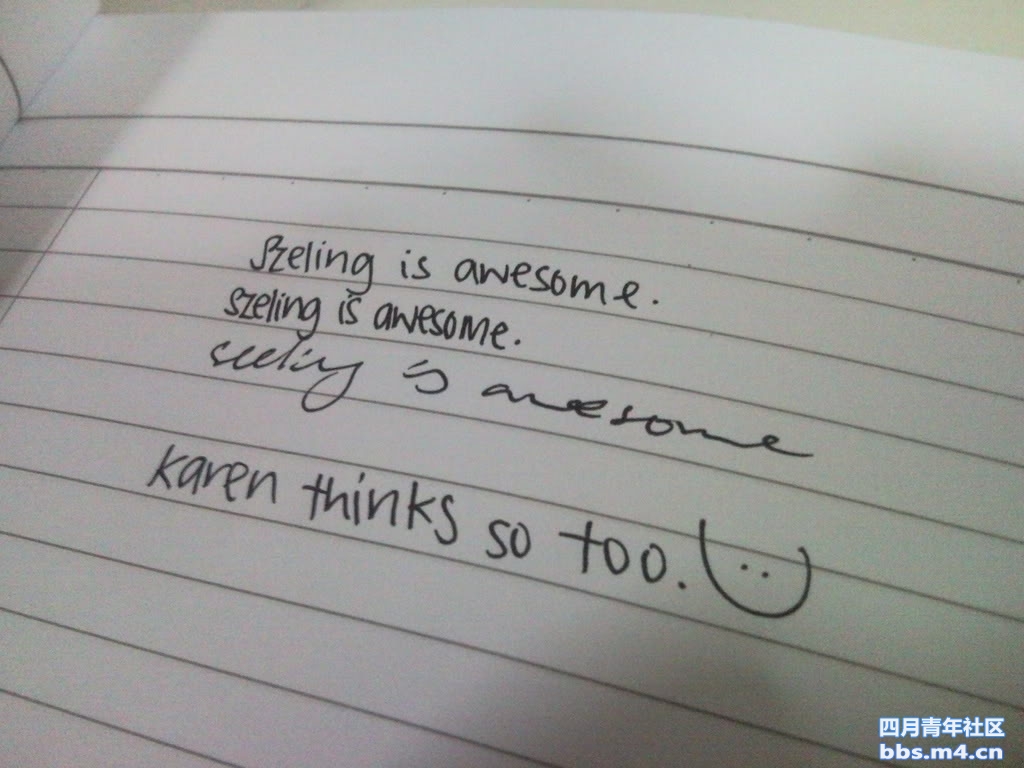 szeling is awesome.
szeling is awesome.
szeling is awesome
karen thinks so too.
四月青年社区
bbs.m4.cn